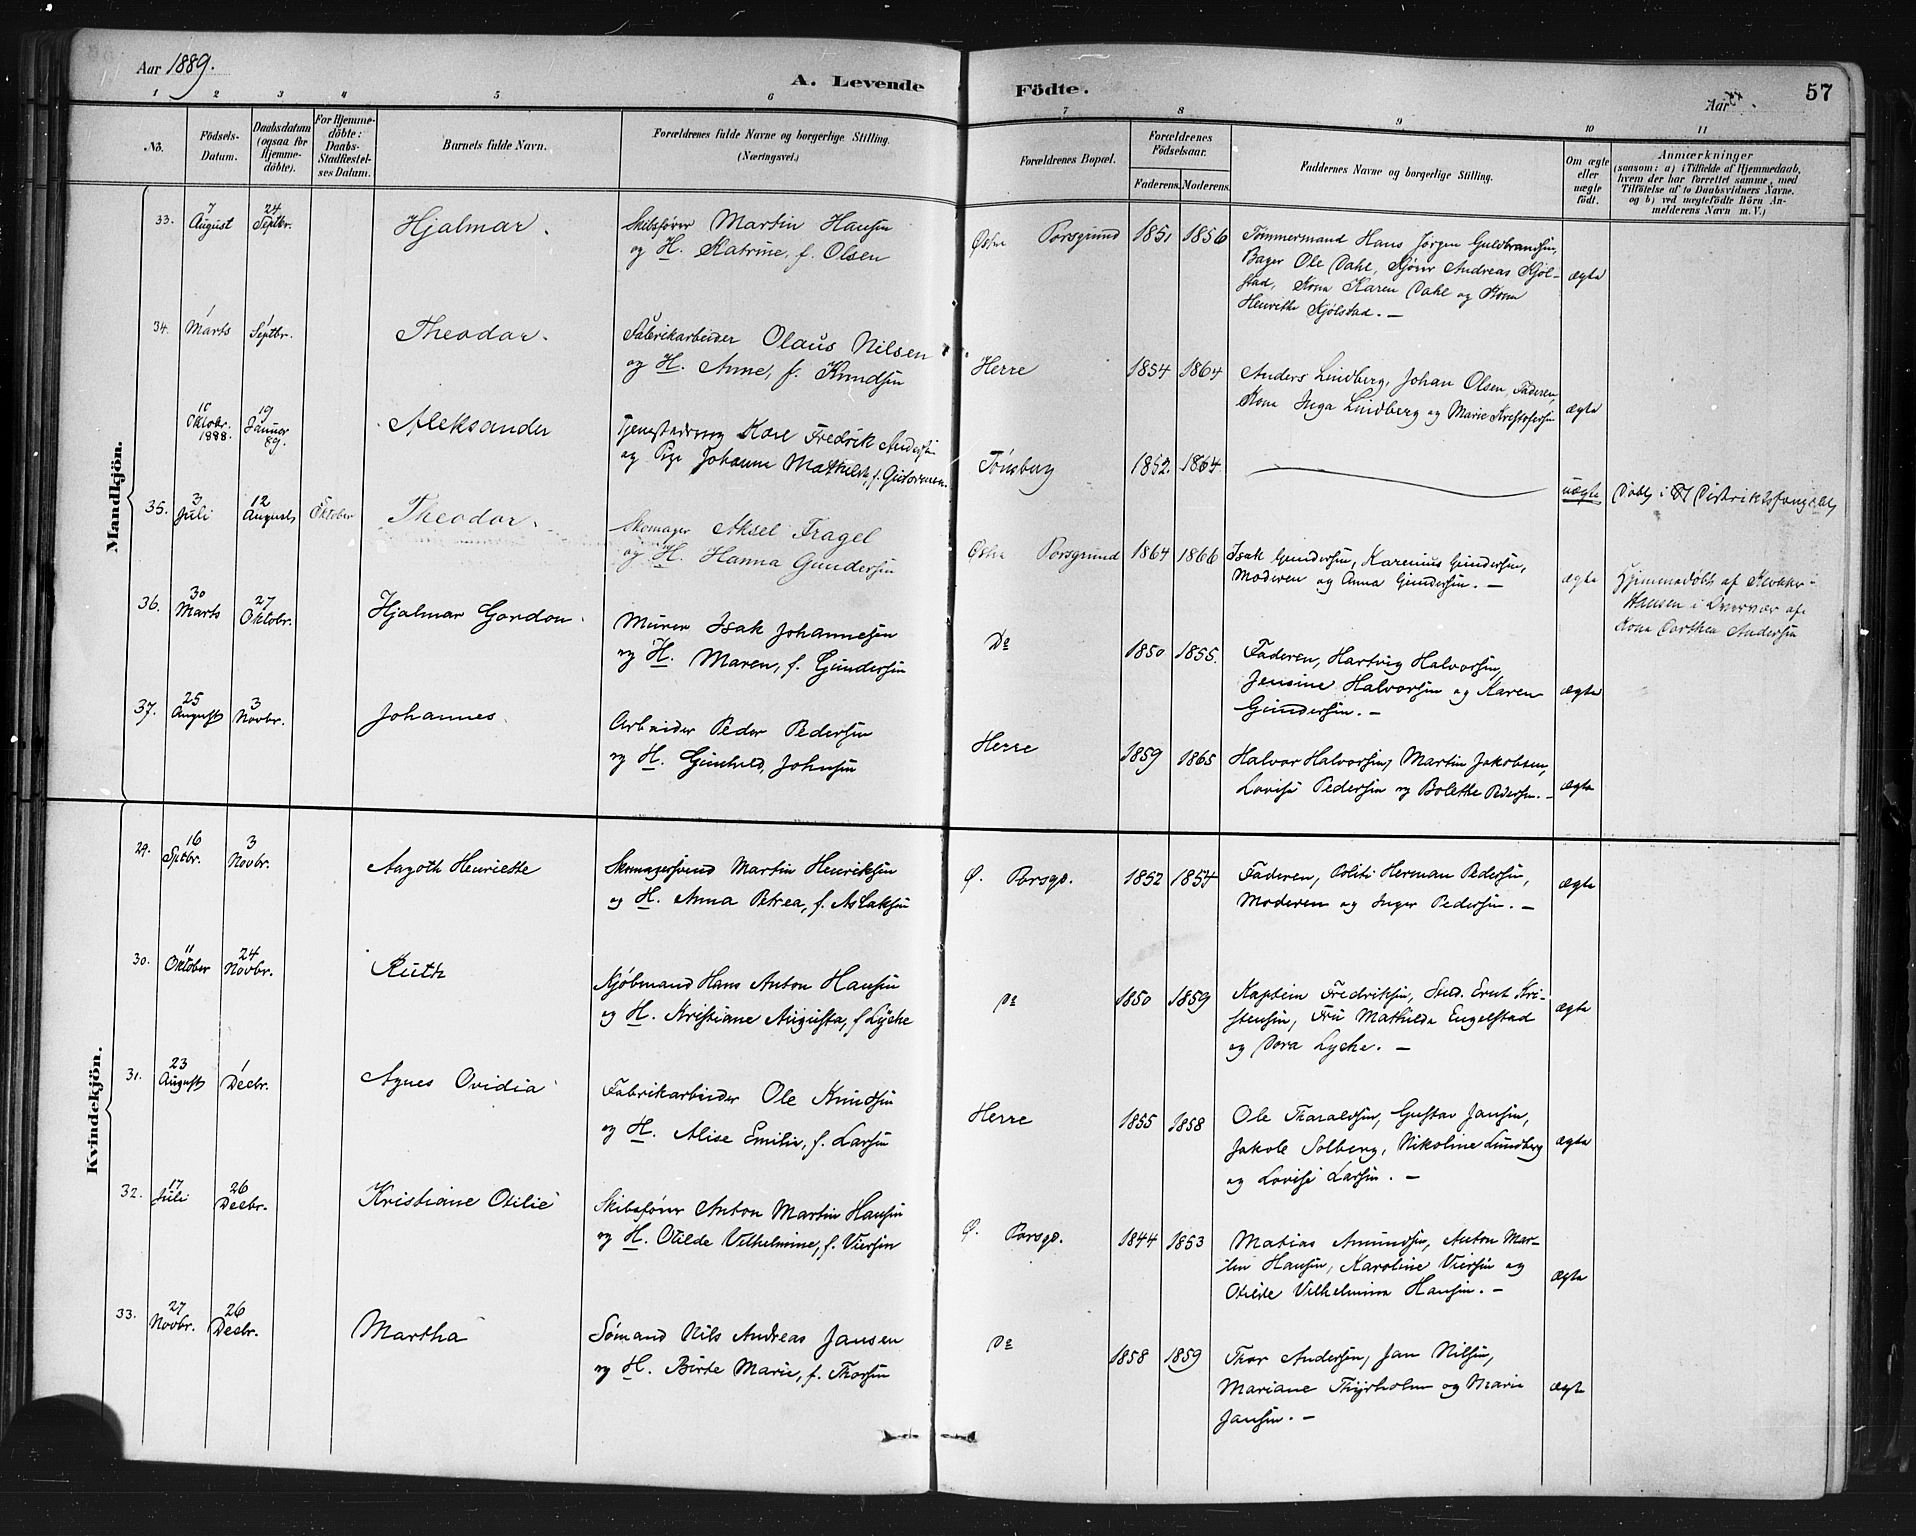 Aar 1889.
A. Levende
Födte.
Aar
57
1 2 3 4 5 6
7 8 9 10 11
No.
Födsels-
Datum.
Daabsdatum
(ogsaa for
Hjemme-
döbte).
For Hjemme-
döbte:
Daabs-
Stadfestel-
ses Datum.
Barnets fulde Navn.
Forældrenes fulde Navne og borgerlige Stilling.
(Næringsvei.)
Forældrenes Bopæl.
Forældrenes
Födselsaar.
Faderens. Moderens.
Faddernes Navne og borgerlige Stilling.
Om ægte
eller
uægte
födt.
Anmærkninger
(saasom: a) i Tilfælde af Hjemmedaab,
hvem der har forrettet samme, med
Tilföielse af to Daabsvidners Navne,
og b) ved uægtefödte Börn An-
melderens Navn m. V.)
Mandkjön.
33.
7
August
24
Septbr.
Hjalmar.
Skibsfører Martin Hansen
og H. Katrine, f. Olsen
Østre Porsgrund
1851 1856
Tømmermand Hans Jørgen Guldbrandsen,
Bager Ole Dahl, Andreas Kjøl-
stad, Kona Karen Dahl og Kona
Henrikke Kjølstad. —
ægte
34.
1
Marts
1
Septbr.
Theodor.
Fabrikarbeider Olaus Nilsen
og H. Anne, f. Knudsen
Herre
1854 1864
Anders Lindberg, Johan Olsen, Faderen,
Kona Inga Lindberg og Marie Kristofersen
ægte
Oktobr.
1888.
19
Januar
89.
Aleksander
Karl Fredrik Anders
og Pige Johanne Mathilde,
Tönsberg
1852. 1864
uægte
Döbt i Distriktsfængslet
35.
3
Juli
12
August
5
Oktober
Theodor.
Skomager Aksel Fragel
og H. Hanna Gundersen
Østre Porsgrund
1864 1866
Isak Gundersen, Karenius Gundersen,
Moderen og Anna Gundersen. —
ægte
Hjemmedøbt af Klokker
Hansen i Nærvær af
Kona Dorthea Andersen
36.
30
Marts
27
Oktobr.
Hjalmar Gordon.
Murer Isak Johannesen
og H. Maren, f. Gundersen
Do
1850 1855.
Faderen, Hartvig Halvorsen,
Jensine Halvorsen og Karen
Gundersen. —
ægte
37.
25
August
3
Novbr.
Johannes.
Arbeider Peder Pedersen
og H. Gunhild, Johnsen
Herre
1859 1865
Halvor Halvorsen, Martin Jakobsen,
Lovise Pedersen og Bolette Pedersen. —
ægte
Kvindekjön.
29.
16
Septbr.
3
Novbr.
Aagoth Henriette
Skomagersvend Martin Henriksen
og H. Anna Petrea, f. Aslaksen
Ø. Porsgd.
1852 1854
Faderen, Politi Herman Pedersen,
Moderen og Inger Pedersen. —
ægte
30.
11
Oktober
24
Novbr.
Ruth
Kjøbmand Hans Anton Hansen
og H. Kristiane Augusta, f. Lyche
Do
1850 1859
Kaptein Fredriksen, Stud. Ernst Kri-
stensen, Fru Mathilda Engelstad
og Dora Lyche. —
ægte
31.
23
August
1
Decbr.
Agnes Ovidia
Fabrikarbeider Ole Knudsen
og H. Alise Emilie, f. Larsen
Herre
1855 1858
Ole Tharaldsen, Gustav Jansen,
Jakob Solberg, Nikoline Lundberg
og Lovise Larsen. —
ægte
32.
17
Juli
26
Decbr.
Kristiane Otilie
Skibsfører Anton Martin Hansen
og H. Otilde Vilhelmine, f. Viersen
Ø. Porsgd.
1844 1853
Matias Amundsen, Anton Mar-
tin Hansen, Karoline Viersen og
Otilde Vilhelmina Hansen. —
ægte
33.
27
Novbr.
26
Decbr.
Martha
Sømand Nils Andreas Jansen
og H. Birte Marie, f. Thorsen
Do
1858 1859
Thor Andersen, Jan Nilsen,
Mariane Thyrholm og Marie
Jansen. —
ægte